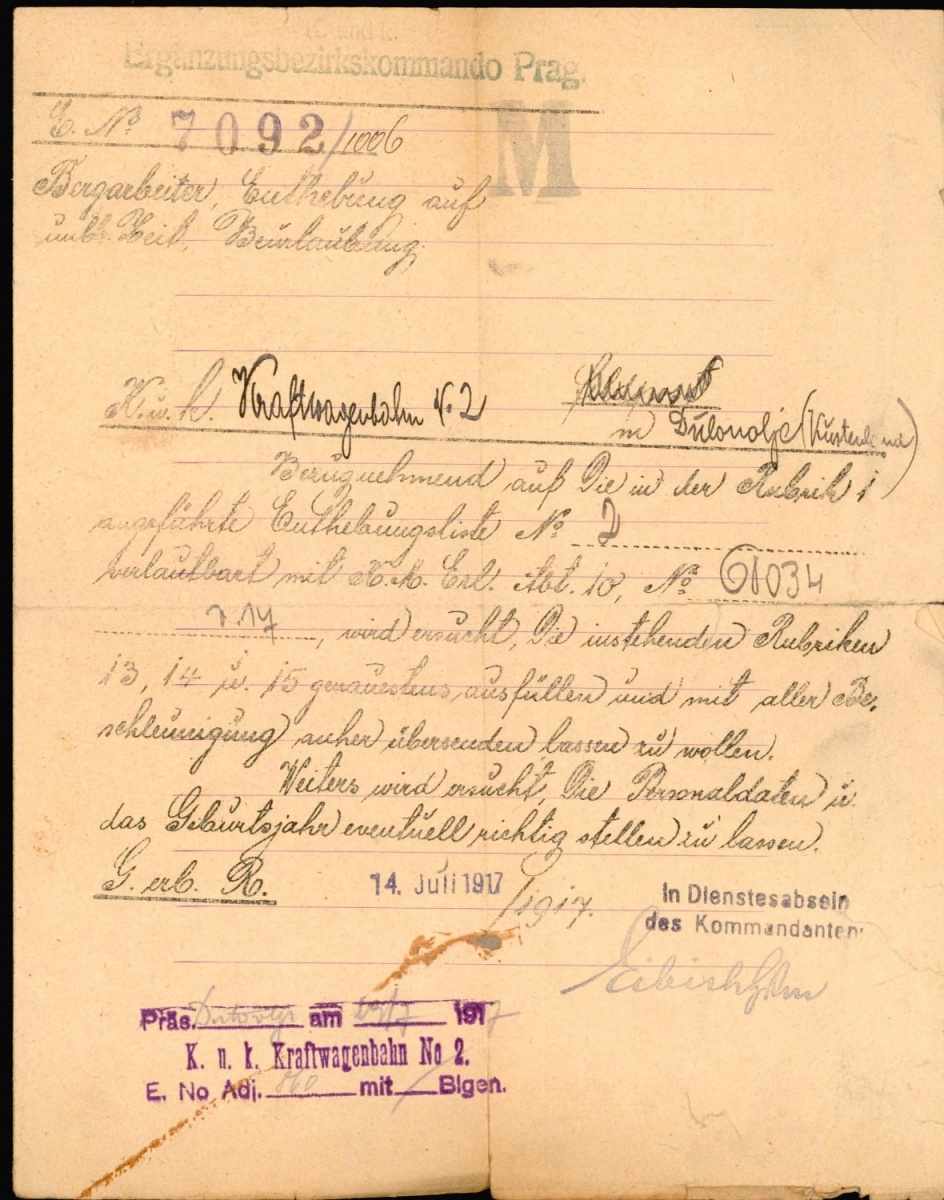 K. und k.
Ergänzungsbezirkskommando Prag.
E. No 7092/1006
M
Bergarbeiter, Enthebung auf
unb. Zeit, Beurlaubung.
K. u. k. Kraftwagenbahn N. 2
in (Küstenland)
Bezugnehmend auf die in der Rubrik 1
angeführte Enthebungsliste No 2
verlautbart mit K. M. Erl. Abt. 10, No
17, wird ersucht, die instehenden Rubriken
13, 14 u. 15 genauestens ausfüllen und mit aller Be-
schleunigung anher übersenden lassen zu wollen.
Weiters wird ersucht, die Personaldaten u.
das Geburtsjahr eventuell richtig stellen zu lassen.
G. erb. R. 14. Juli 1917 /1917.
In Dienstesabsein
des Kommandanten:
Präs. am 1917
K. u. k. Kraftwagenbahn No 2.
E. No Adj. mit Blgen.